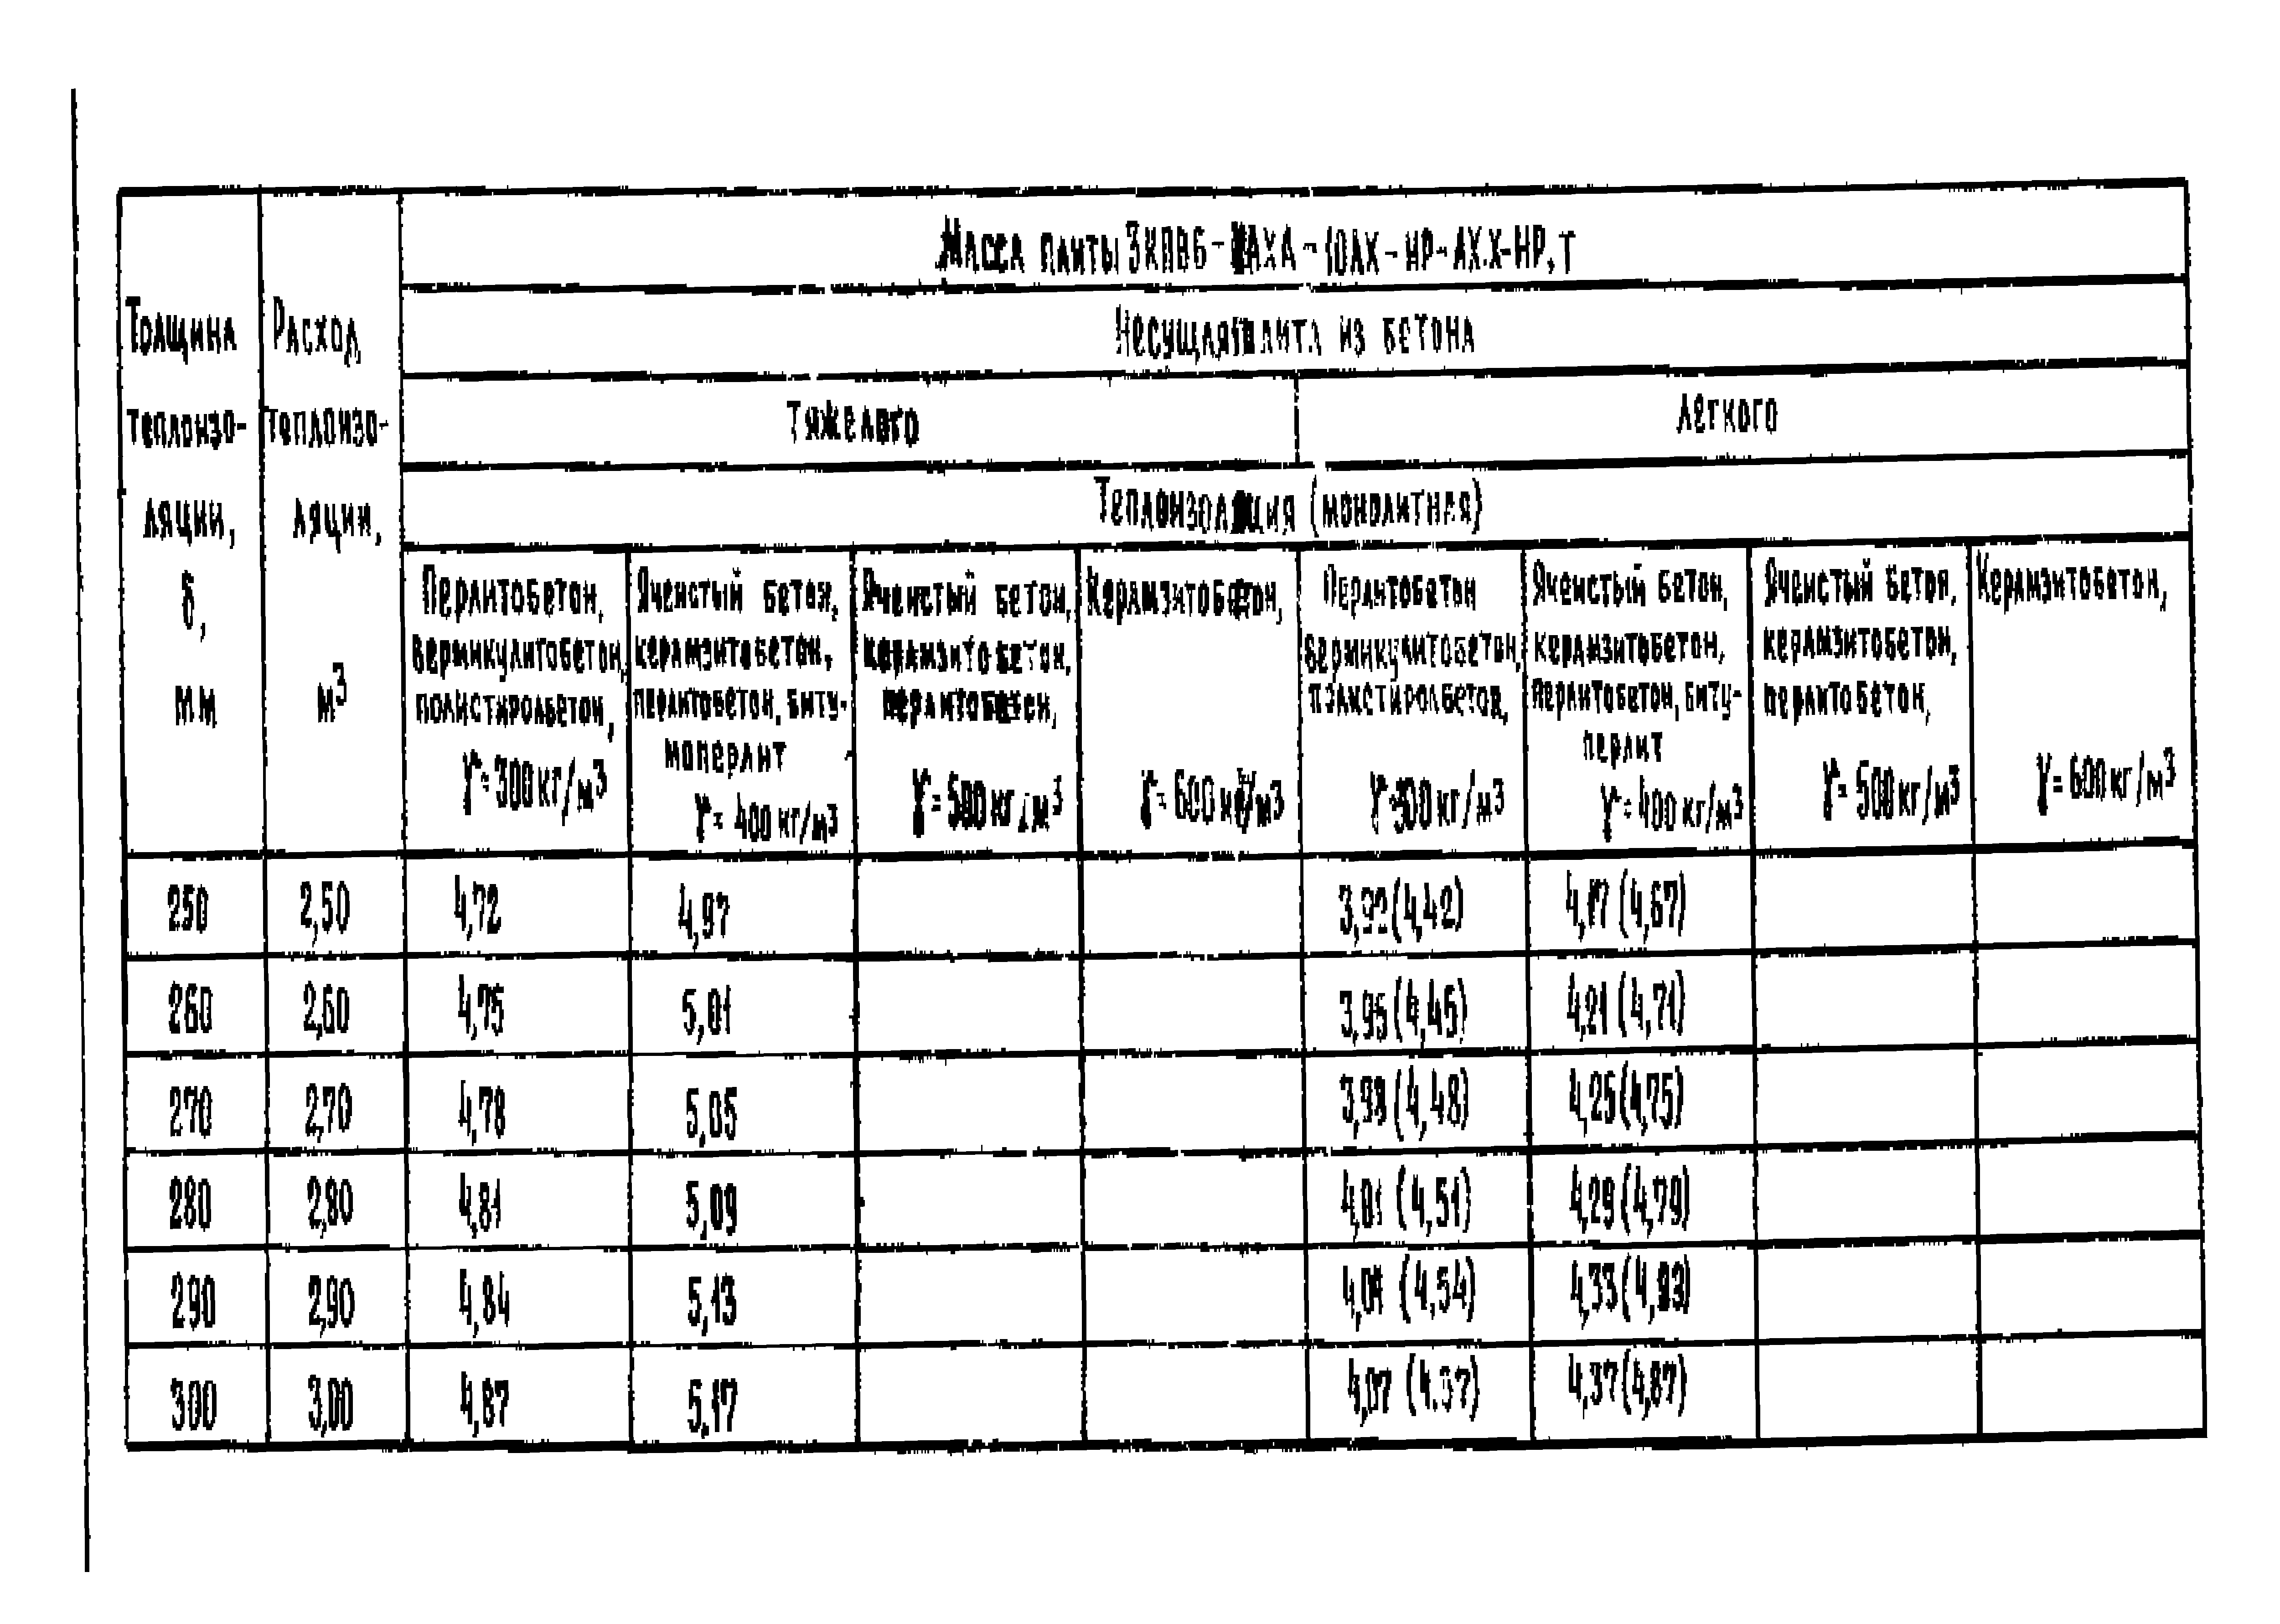 Масса плиты 3КПВ6-АХА-10АХ-НР-АХ.Х-НР, т
Несущая плита из бетона
Тяжелого
Легкого
Теплоизоляция (монолитная)
Толщина
теплоизо-
ляции,
δ,
мм
Расход
теплоизо-
ляции,
м³
Перлитобетон,
вермикулитобетон,
полистиролбетон,
γ=300 кг/м³
Ячеистый бетон,
керамзитобетон,
перлитобетон, биту-
моперлит
γ=400 кг/м³
Ячеистый бетон,
керамзитобетон,
перлитобетон,
γ=500 кг/м³
Керамзитобетон,
γ=600 кг/м³
Перлитобетон
вермикулитобетон,
полистиролбетон,
γ=300 кг/м³
Ячеистый бетон,
керамзитобетон,
перлитобетон, биту-
перлит
γ=400 кг/м³
Ячеистый бетон,
керамзитобетон,
перлитобетон,
γ=500 кг/м³
Керамзитобетон,
γ=600 кг/м³
250 2,50 4,72 4,97 3,92 (4,42) 4,17 (4,67)
260 2,60 4,75 5,01 3,95 (4,45) 4,21 (4,71)
270 2,70 4,78 5,05 3,98 (4,48) 4,25 (4,75)
280 2,80 4,81 5,09 4,01 (4,51) 4,29 (4,79)
290 2,90 4,84 5,13 4,04 (4,54) 4,33 (4,83)
300 3,00 4,87 5,17 4,07 (4.57) 4,37 (4,87)